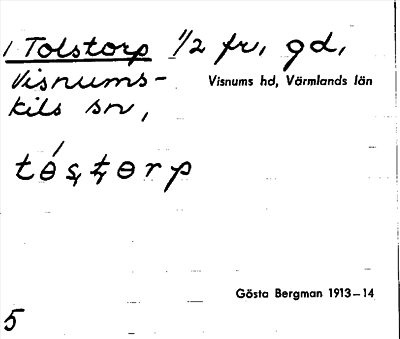 1 Tolstorp 1/2 fr, gd,
Visnums-
kils sn,
Visnums hd, Värmlands län
tɵ́s̨t̨ɵrp
Gösta Bergman 1913–14
5